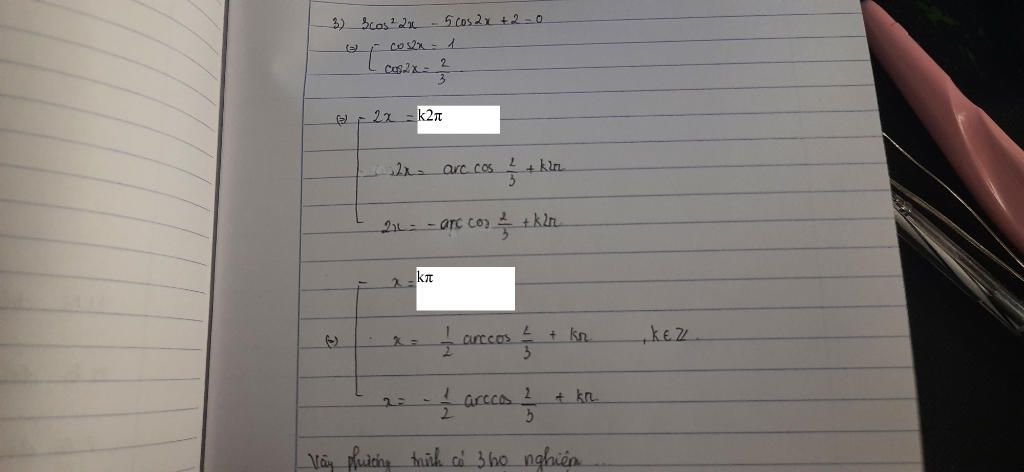 3) 3cos² 2x - 5cos2x + 2 = 0
(=) [ cos2x = 1
cos2x = 2/3
(=) [ 2x = k2π
2x = arccos 2/3 + k2π
2x = - arccos 2/3 + k2π
x = kπ
(=) [ x = 1/2 arccos 2/3 + kπ , k ∈ Z.
x = - 1/2 arccos 2/3 + kπ
Vậy phương trình có 3 họ nghiệm ...